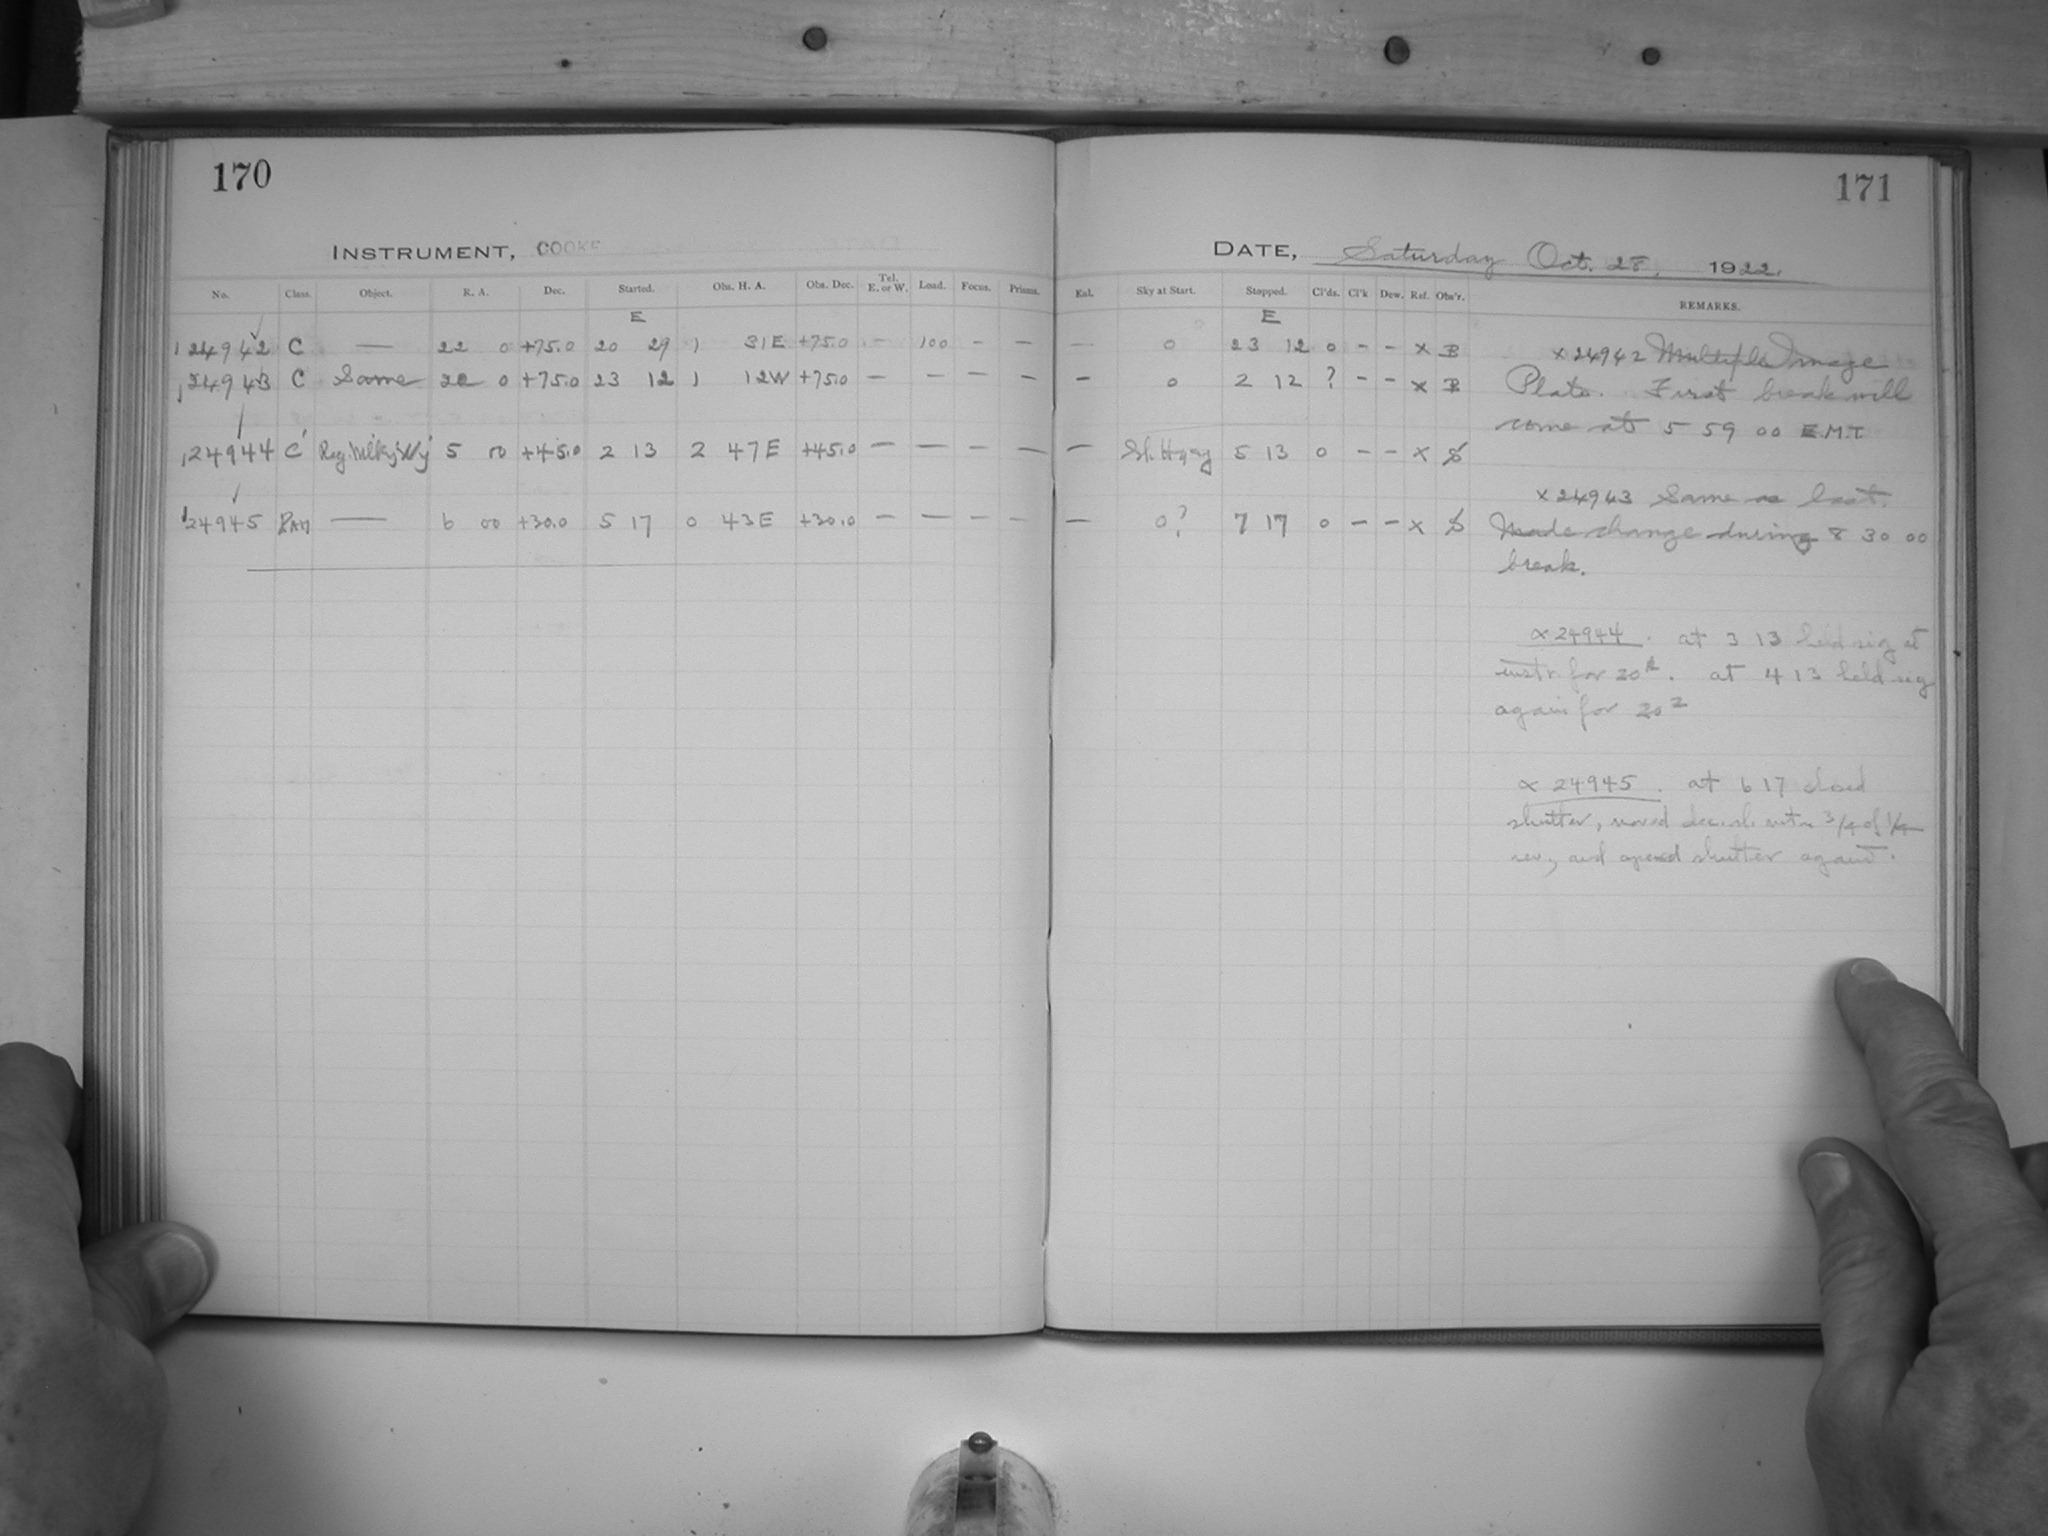 170
INSTRUMENT, COOKE
No. Class. Object. R. A. Dec. Started. Obs. H. A. Obs. Dec. Tel. E. or W. Load. Focus. Prisms.
E
24942 C — 22 0 +75.0 20 29 1 31E +75.0 - 100 - -
24943 C Same 22 0 +75.0 23 12 1 12W +75.0 - - - -
24944 C Reg. Milky Wy 5 00 +45.0 2 13 2 47E +45.0 - - - -
24945 RAM — 6 00 +30.0 5 17 0 43E +30.0 - - - -
171
DATE, Saturday Oct. 28, 1922.
Exl. Sky at Start. Stopped. Cl'ds. Cl'k Dew. Ref. Obs'r. REMARKS.
E
- 0 23 12 0 - - x B
- 0 2 12 ? - - x B
- Sl. Hazy 5 13 0 - - x S
- 0? 7 17 0 - - x S
x 24942 Multiple Image
Plate. First break will
come at 5 59 00 E.M.T.
x 24943 Same as last.
Made change during 8 30 00
break.
x 24944. at 3 13 held sig at
instr. for 20s. at 4 13 held sig
again for 20s
x 24945. at 6 17 closed
shutter, moved dec. 3/4 of 1/4
rev, and opened shutter again.